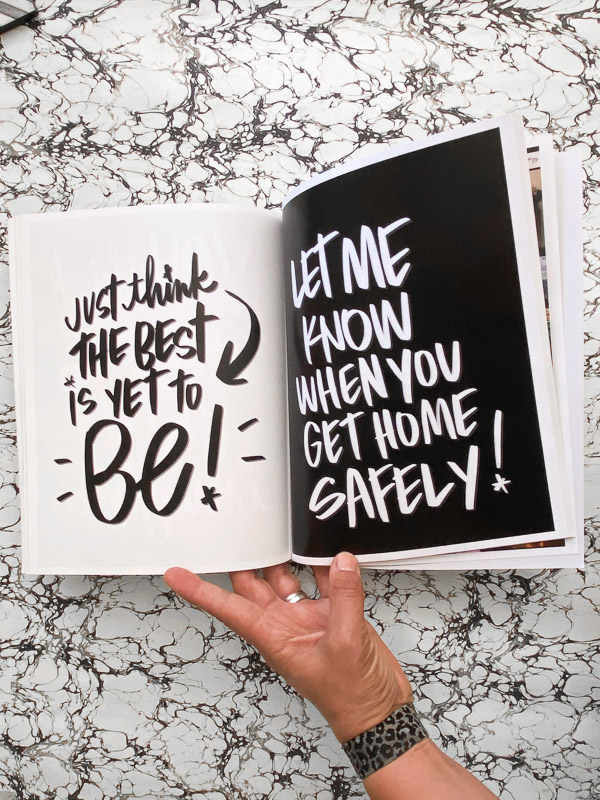 Just think
THE BEST
is YET TO
Be!
LET ME
KNOW
WHEN YOU
GET HOME
SAFELY!